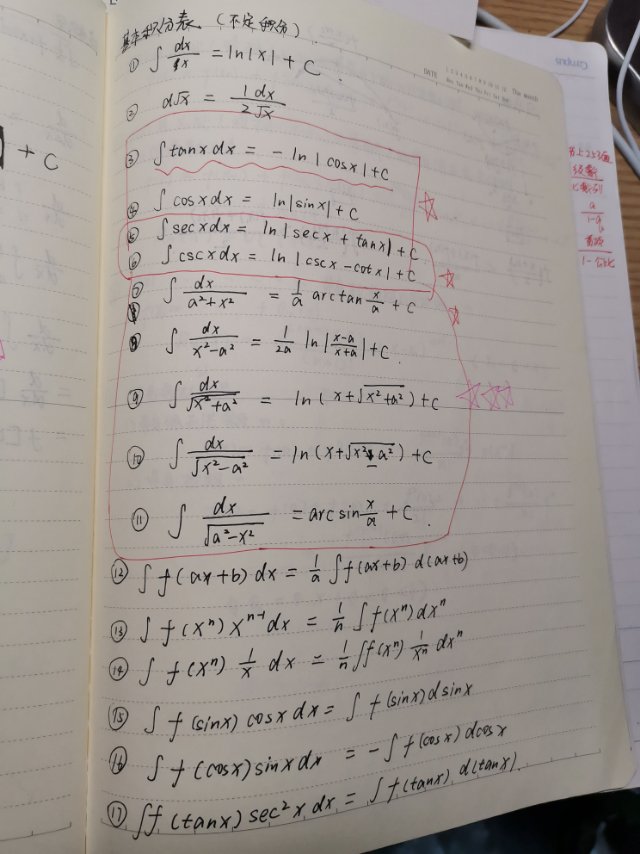 基本积分表 (不定积分)
① ∫ dx/x = ln|x| + C.
② d√x = 1dx/2√x
③ ∫ tanxdx = - ln|cosx|+C
④ ∫ cosxdx = ln|sinx|+C
⑤ ∫ secxdx = ln|secx + tanx|+C
⑥ ∫ cscxdx = ln|cscx - cotx|+C
⑦ ∫ dx/(a²+x²) = 1/a arctan x/a + C
⑧ ∫ dx/(x²-a²) = 1/2a ln|(x-a)/(x+a)|+C.
⑨ ∫ dx/√(x²+a²) = ln(x+√(x²+a²))+C
⑩ ∫ dx/√(x²-a²) = ln(x+√(x²-a²))+C
⑪ ∫ dx/√(a²-x²) = arcsin x/a + C.
⑫ ∫ f(ax+b)dx = 1/a ∫ f(ax+b) d(ax+b)
⑬ ∫ f(xⁿ)xⁿ⁻¹dx = 1/n ∫ f(xⁿ)dxⁿ
⑭ ∫ f(xⁿ) 1/x dx = 1/n ∫ f(xⁿ) 1/xⁿ dxⁿ
⑮ ∫ f(sinx) cosxdx = ∫ f(sinx)dsinx
⑯ ∫ f(cosx)sinxdx = -∫ f(cosx)dcosx
⑰ ∫ f(tanx)sec²xdx = ∫ f(tanx) d(tanx).
+ C
DATE
Campus